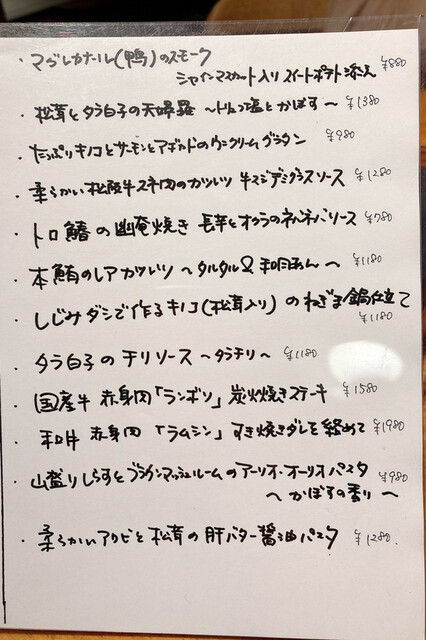 ・マグレカナール(鴨)のスモーク
シャインマスカット入りスイートポテト添え ¥880
・松茸とタラ白子の天婦羅 〜トリュフ塩とかぼす〜 ¥1380
・たっぷりキノコとサーモンとアボカドのウニクリームグラタン ¥980
・柔らかい松阪牛スネ肉のカツレツ 牛スジデミグラスソース ¥1280
・トロ鰆の幽庵焼き 長芋とオクラのネバネバソース ¥780
・本鮪のレアカツレツ 〜タルタル& 〜 ¥1180
・しじみダシで作るキノコ(松茸入り)のねぎま鍋仕立て
¥1180
・タラ白子のチリソース 〜タラチリ〜 ¥1180
・国産牛 赤身肉「ランボソ」炭火焼きステーキ ¥1580
・和牛 赤身肉 「ラムシン」すき焼きダレを絡めて ¥1980
・山盛りしらすとブラウンマッシュルームのアーリオ・オーリオパスタ ¥980
〜かぼすの香り〜
・柔らかいアワビと松茸の肝バター醤油パスタ ¥1280.